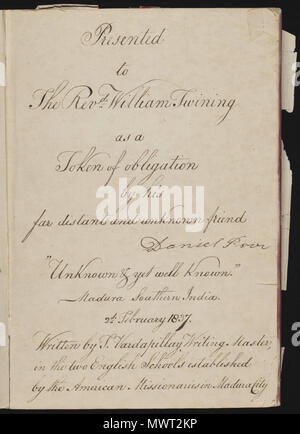 Presented
to
The Revd. William Twining
as a
Token of obligation
by his
far distant and unknown friend
Daniel Poor
"Unknown & yet well Known."
Madura Southern India.
2d. February 1837.
Written by T. Vardapillay Writing Master,
in the two English Schools established
by the American Missionaries in Madura City
alamy
alamy
Image ID: MWT2KP
www.alamy.com